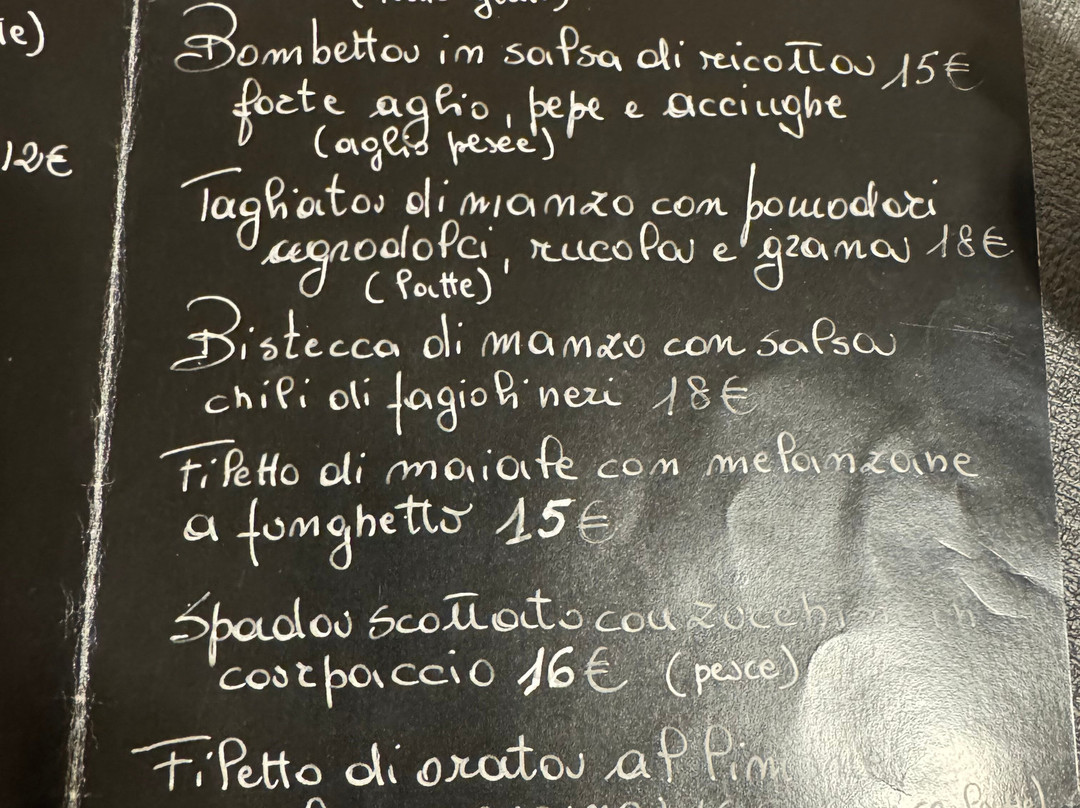 ie)
12€
Bombetta in salsa di ricotta 15€
forte aglio, pepe e acciughe
(aglio pesce)
Tagliata di manzo con pomodori
agrodolci, rucola e grana 18€
(latte)
Bistecca di manzo con salsa
chili di fagioli neri 18€
Filetto di maiale con melanzane
a funghetto 15€
Spada scottato con zucchi
carpaccio 16€ (pesce)
Filetto di orata al lim